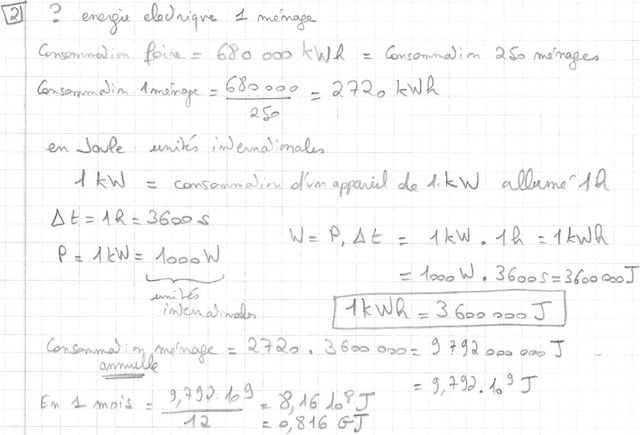 2 ? energie electrique 1 ménage
Consommation foire = 680 000 kWh = Consommation 250 ménages
Consommation 1 ménage = 680000 / 250 = 2720 kWh
en Joule : unités internationales
1 kW = consommation d'un appareil de 1 kW allumé 1h
Δt = 1h = 3600 s
P = 1 kW = 1000 W
unités internationales
W = P. Δt = 1 kW . 1h = 1 kWh
= 1000 W . 3600 s = 3600 000 J
1 kWh = 3 600 000 J
Consommation ménage = 2720 . 3 600 000 = 9 792 000 000 J
annuelle
= 9,792.10⁹ J
En 1 mois = 9,792.10⁹ / 12 = 8,16 10⁸ J
= 0,816 GJ